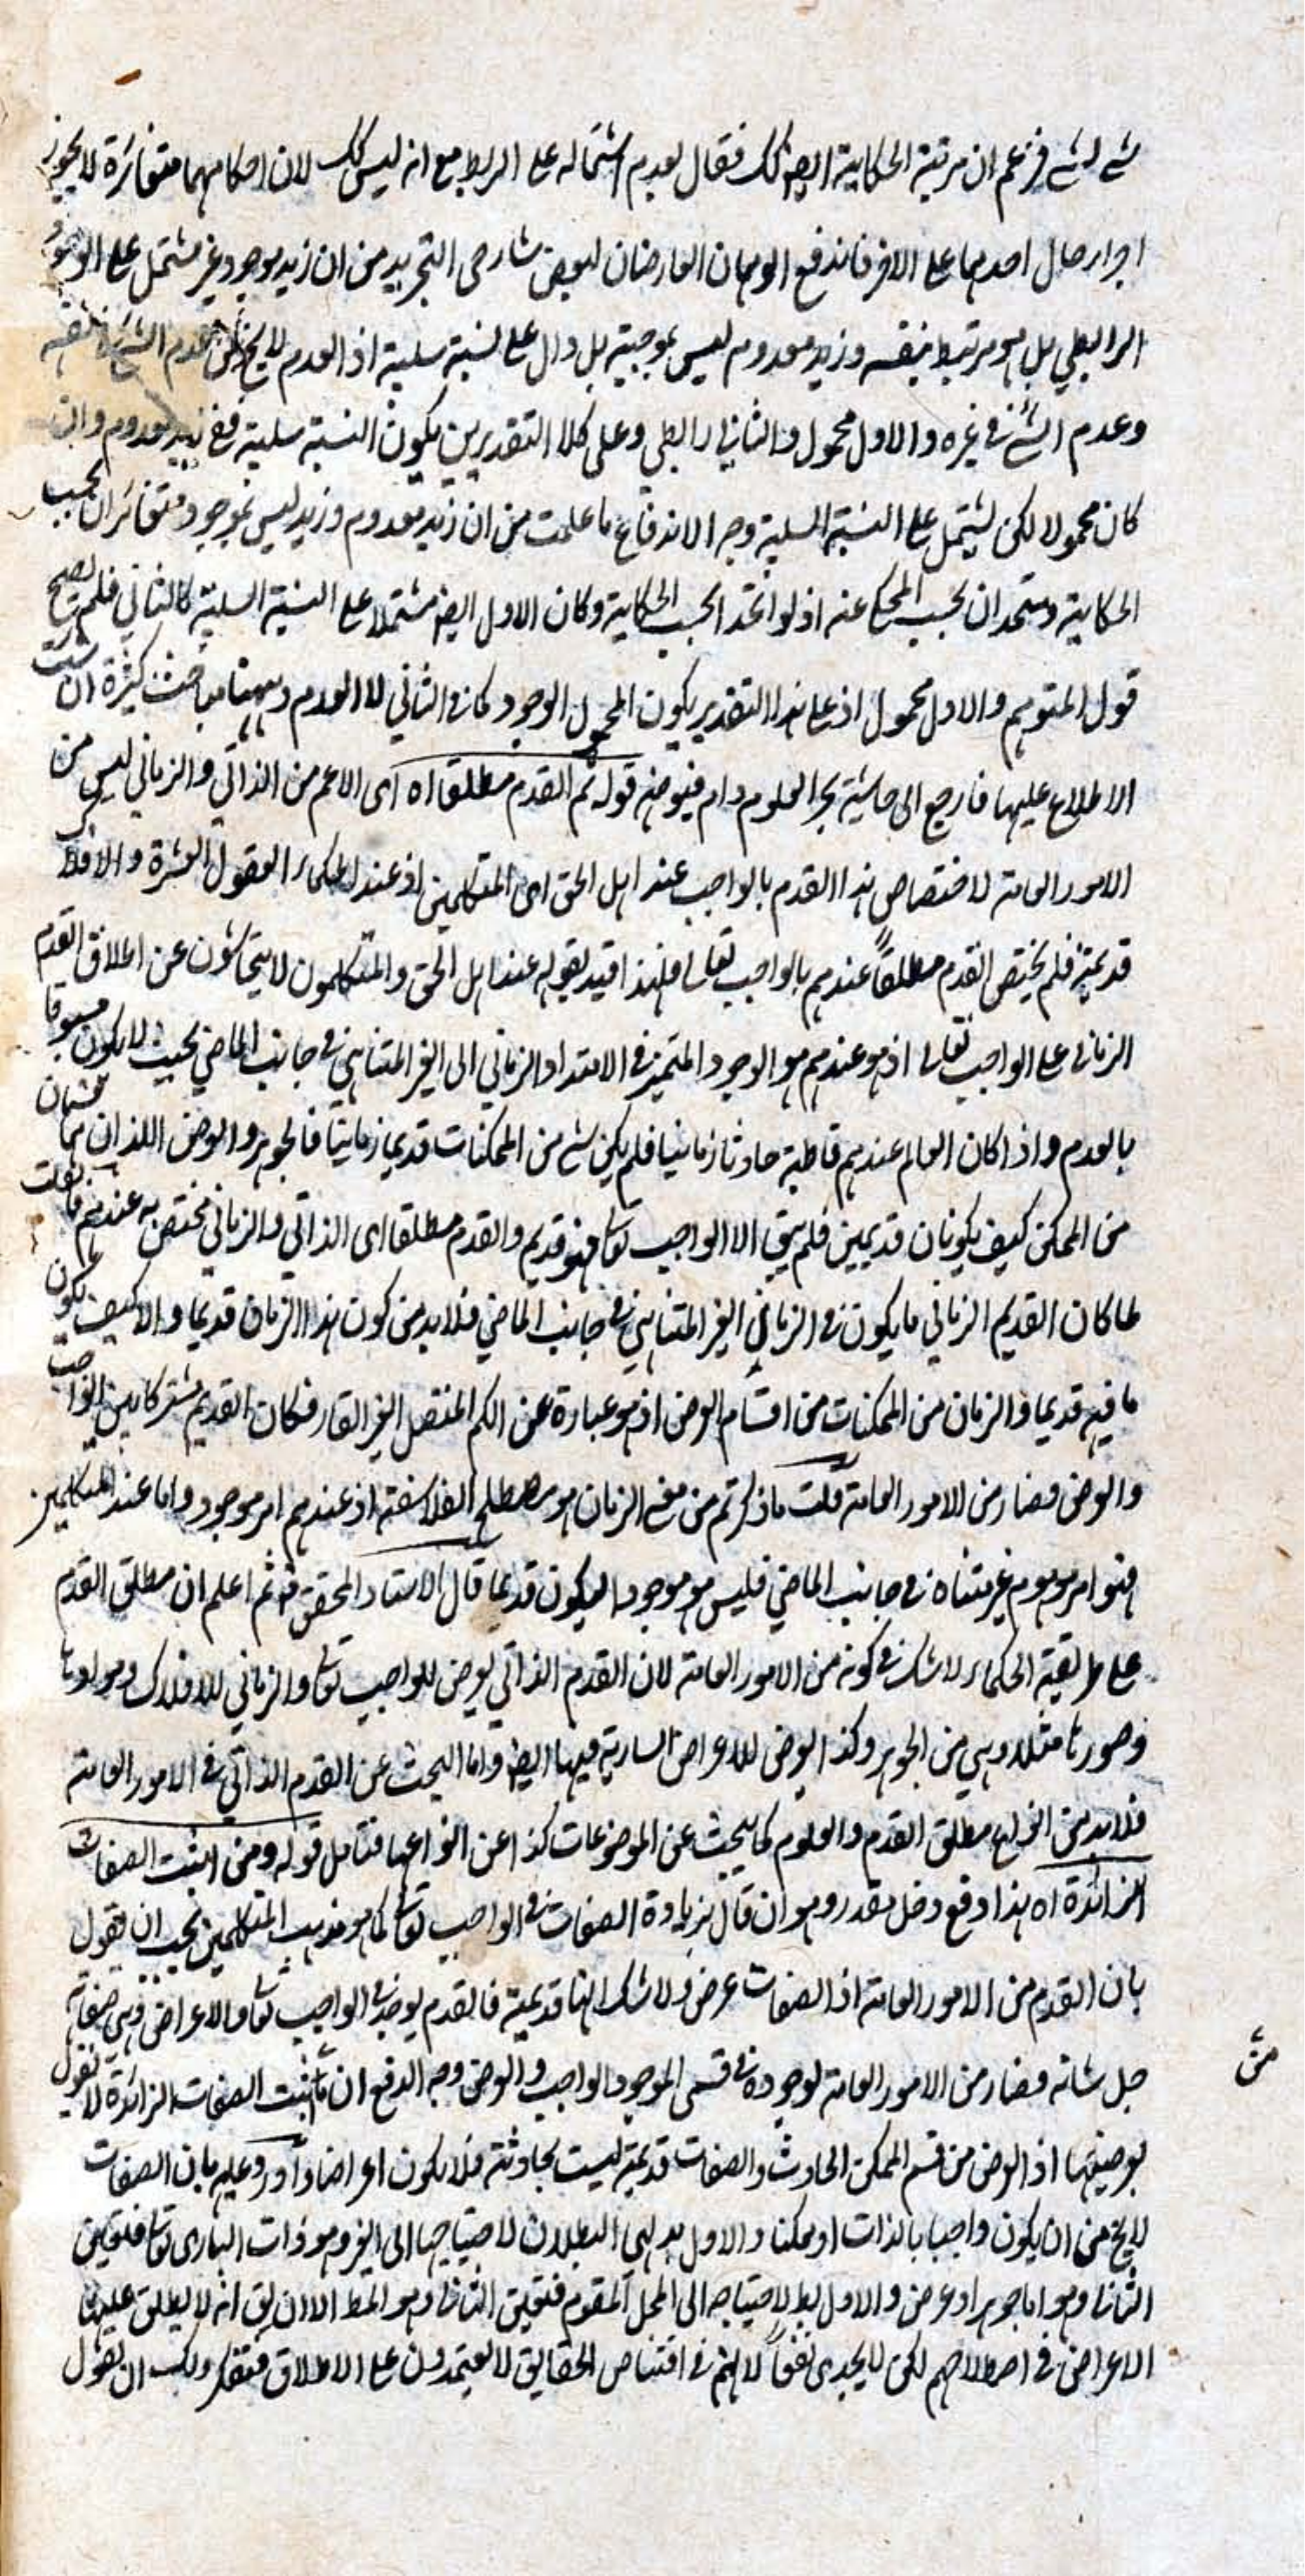 شئ لشئ فزعم ان مرتبة الحكاية ايضا كك فقال بعدم اشتماله على الربط مع انه ليس كك لان احكامهما متغائرة لا يجوز
اجراء حال احدهما على الاخر فاندفع الوهمان العارضان لبعض شارحى التجريد من ان زيد موجود غير مشتمل على الوجود
الرابطي بل هو مرتبط بنفسه وزيد معدوم ليس بموجبة بل دال على نسبة سلبية اذ العدم لا يخ من عدم الشئ فى نفسه
وعدم الشئ فى غيره والاول محمول والثانى رابطي وعلى كلا التقديرين يكون النسبة سلبية فمع زيد معدوم وان
كان محمولا لكن يشتمل على النسبة السلبية وجه الاندفاع ما علمت من ان زيد معدوم وزيد ليس بموجود متغائران بحسب
الحكاية ومتحدان بحسب المحكى عنه اذ لو اتحد بحسب الحكاية وكان الاول ايضا مشتملا على النسبة السلبية كالثاني فلم يصح
قول المتوهم والاول محمول اذ على هذا التقدير يكون المحمول الوجود كما فى الثاني لا العدم وههنا مباحث كثيرة ان شئت
الاطلاع عليها فارجع الى حاشية بحر العلوم دام فيوضه قوله ثم القدم مطلقا اه اى الاعم من الذاتي والزماني ليس من
الامور العامة لاختصاص هذا القدم بالواجب عند اهل الحق اى المتكلمين اذ عند الحكماء العقول العشرة والافلاك
قديمة فلم يختص القدم مطلقاً عندهم بالواجب تعالى فلهذا قيد بقوله عند اهل الحق والمتكلمون لا يتحاشون عن اطلاق القدم
الزمانى على الواجب تعالى اذ هو عندهم هو الوجود المتميز فى الامتداد الزماني الى الغير المتناهي فى جانب الماضي بحيث لا يكون مسبوقا
بالعدم واذا كان العالم عندهم قاطبة حادثا زمانيا فلم يكن شئ من الممكنات قديما زمانيا فالجوهر والعرض اللذان هما قسمان
من الممكن كيف يكونان قديمين فلم يبق الا الواجب تعالى فهو قديم والقدم مطلقا اى الذاتي والزماني مختص به عندهم فان قلت
لما كان القديم الزماني ما يكون فى الزمان الغير المتناهي فى جانب الماضي فلا بد من كون هذا الزمان قديما والا كيف يكون
ما فيه قديما والزمان من الممكنات من اقسام العرض اذ هو عبارة عن الكم المتصل الغير القار فكان القديم مشتركا بين الواجب
والعرض فصار من الامور العامة قلت ما ذكرتم من معنى الزمان هو مصطلح الفلاسفة اذ عندهم امر موجود واما عند المتكلمين
فهو امر موهوم غير متناه فى جانب الماضي فليس هو موجودا ليكون قديما قال الاستاد المحقق قد ثم اعلم ان مطلق القدم
على طريقة الحكماء لا شك فى كونه من الامور العامة لان القدم الذاتي يعرض للواجب تعالى والزماني للافلاك وموادها
وصورها مثلا وهي من الجوهر وكذا يعرض للاعراض السارية فيها ايضا واما البحث عن القدم الذاتي فى الامور العامة
فلا بد من انواع مطلق القدم والعلوم كما يبحث عن الموضوعات كذا عن انواعها فتامل قوله ومن اثبت الصفات
الزائدة اه هذا دفع دخل مقدر وهو ان قال بزيادة الصفات فى الواجب تعالى كما هو مذهب المتكلمين يجب ان يقول
بان القدم من الامور العامة اذ الصفات عرض ولا شك انها قديمة فالقدم يوجد فى الواجب تعالى والاعراض وهى صفاته
جل شانه فصار من الامور العامة لوجوده فى قسمى الموجود الواجب والعرض وجه الدفع ان من اثبت الصفات الزائدة لا يقول
بعرضيتها اذ العرض من قسم الممكن الحادث والصفات قديمة ليست بحادثة فلا يكون اعراضا واورد عليه بان الصفات
لا يخ من ان يكون واجبا بالذات او ممكنا والاول بديهي البطلان لاحتياجها الى الغير وهو ذات البارى تعالى فتعين
الثانى وهو اما جوهر او عرض والاول بط لاحتياجه الى المحل المقوم فتعين الثانى وهو المط الا ان يق انه لا يطلق عليها
الاعراض فى اصطلاحهم لكن لا يجدى نفعاً لانهم فى اقتناص الحقايق لا يعتمدون على الاطلاق فتفكر ولك ان تقول
من